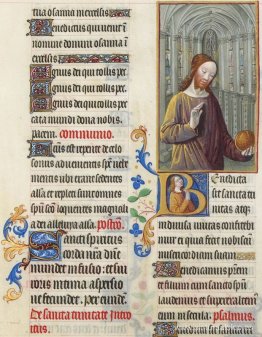 tria osanna in excelsis
Benedictus qui uenit i
nomine domini osanna i
excelsis.
Agnus dei qui tollis pec
Agnus dei qui tollis pec
Agnus dei qui tollis pec
cata mundi dona nobis
pacem. communio.
Factus est repente de celo
sonus aduenientis spūs vehe
mentis ubi erant sedentes
alla et repleti sunt omnes
spū scō loquentes magnali
a dei alleluya alla. postcō.
Sancti spiritus
corda nrā dnē
mundet infusio: et sui
roris intima aspersio
ne fecundet. per eiusdē.
De sancta trinitate Intro
itus.
Benedicta
sit sancta tri
nitas atq
indiuisa unitas confitebi
mur ei quia fecit nobiscū
misericordiam suam
Benedicamus patrem
et filium cum sancto spū
laudemus et superexaltem
eum in secula. psalmus.
sit sancta